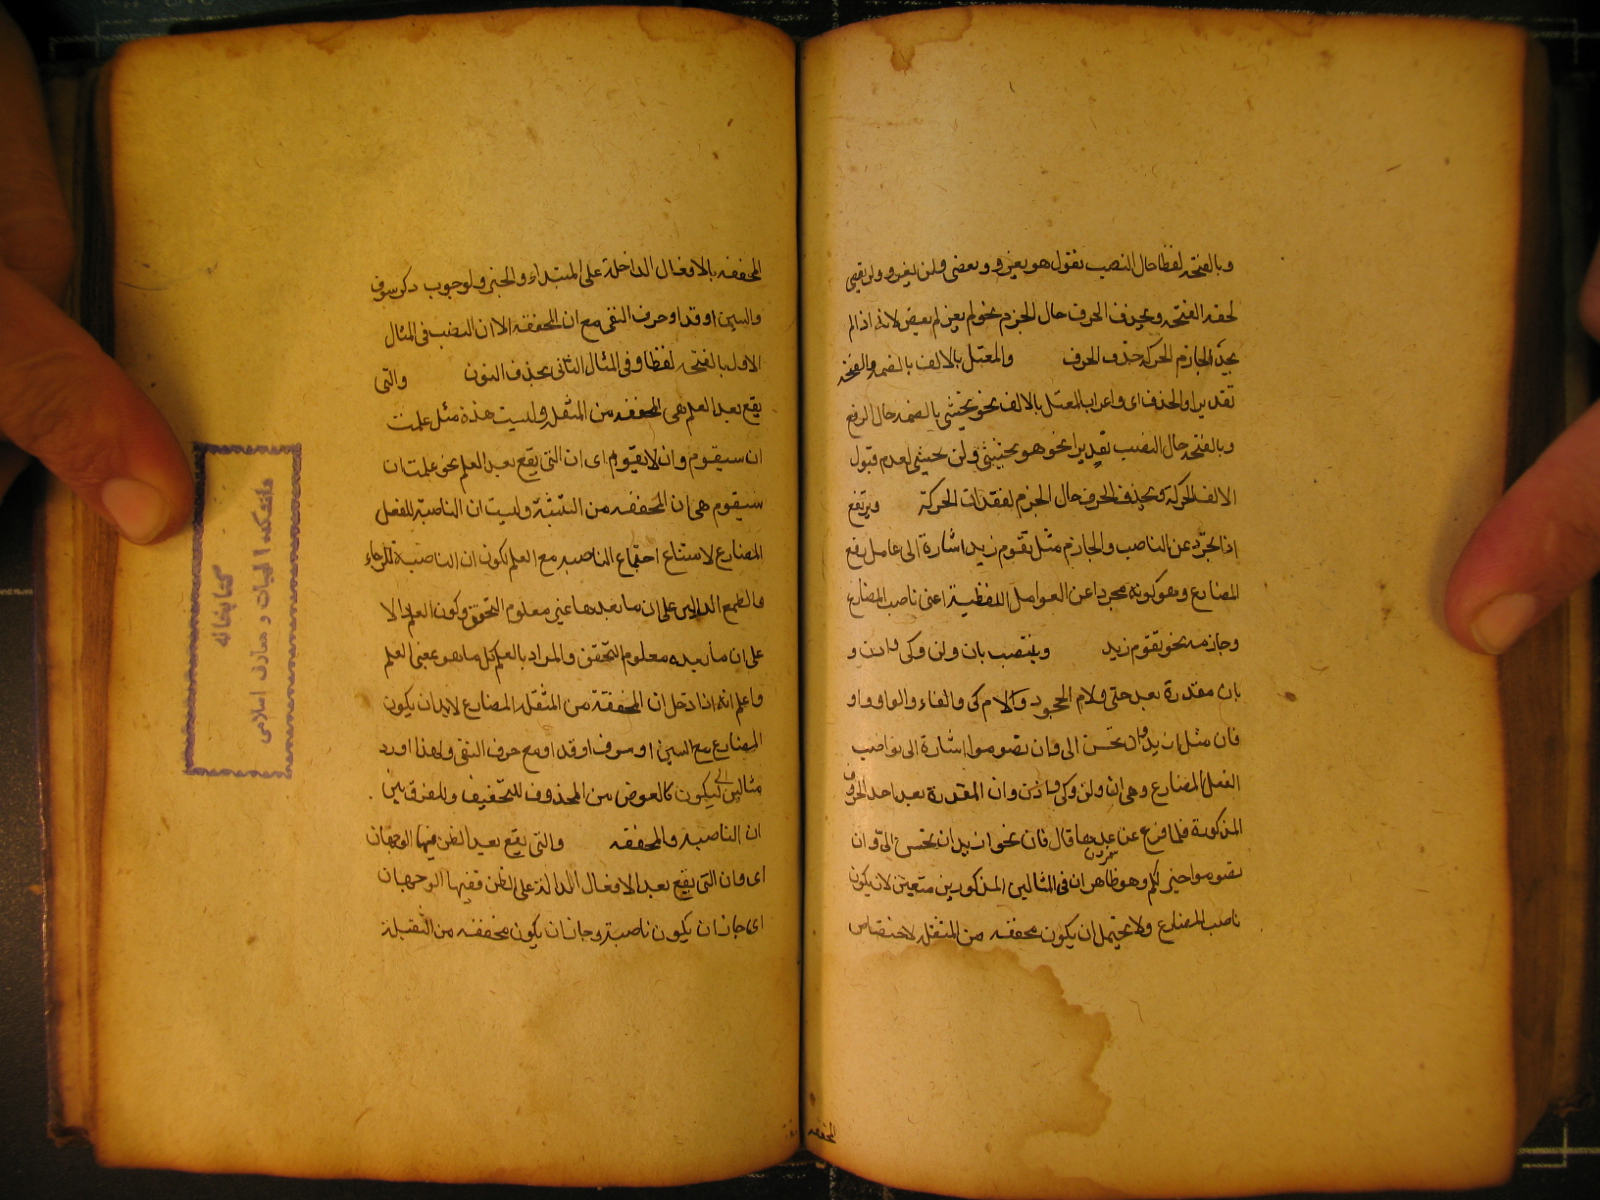 وبالفتحة لفظا حال النصب تقول هو يغزو ويقضي ولن يغزو ولن يقضي
لخفة الفتحة وبحذف الحرف حال الجزم نحو لم يغز لم يقض لانه اذا لم
يجد الجازم الحركة حذف الحرف والمعتل بالالف بالضمة والفتحة
تقديرا والحذف اى واعراب المعتل بالالف نحو يخشى بالضمة حال الرفع
وبالفتحة حال النصب تقديرا نحو هو يخشى ولن يخشى لعدم قبول
الالف الحركة وبحذف الحرف حال الجزم لفقدان الحركة ويرتفع
اذا تجرد عن الناصب والجازم مثل يقوم زيد اشارة الى عامل رفع
المضارع وهو كونه مجردا عن العوامل اللفظية اعنى ناصب المضارع
وجازمه نحو يقوم زيد وينتصب بان ولن وكى واذن و
بان مقدرة بعد حتى ولام الجحود ولام كى والفاء والواو واو
فان مثل اريد ان تحسن الى وان تصوموا اشارة الى نواصب
الفعل المضارع وهى ان ولن وكى واذن وان المقدرة بعد احد الحروف
المذكورة فلما فرغ عن عدها قال فان نحو اريد ان تحسن الىّ وان
تصوموا خير لكم وهو ظاهر ان فى المثالين المذكورين متعين لان يكون
ناصب المضارع ولا يحتمل ان يكون مخففه من المثقلة لاختصاص
المخففه
المخففه بالافعال الداخلة على المبتداء والخبر ولوجوب ذكر سوف
والسين او قد او حرف النفى مع ان المخففه الا ان النصب فى المثال
الاول بالفتحة لفظا وفى المثال الثانى بحذف النون والتى
يقع بعد العلم هى المخففه من المثقلة وليست هذه مثل علمت
ان سيقوم وان لا يقوم اى ان التى يقع بعد العلم نحو علمت ان
سيقوم هى ان المخففه من المثقلة وليست ان الناصبة للفعل
المضارع لامتناع اجتماع الناصبه مع العلم لكون ان الناصبة للرجاء
والطمع الدالين على ان ما بعدها غير معلوم التحقق وكون العلم دالا
على ان ما بعده معلوم التحقق والمراد بالعلم كل ما هو بمعنى العلم
واعلم انه اذا دخل ان المخففة من المثقلة المضارع لابد ان يكون
المضارع مع السين او سوف او قد او مع حرف النفى ولهذا اورد
مثالين ليكون كالعوض من المحذوف للتخفيف وللفرق بين
ان الناصبة والمخففه والتى يقع بعد الظن فيها الوجهان
اى وان التى يقع بعد الافعال الدالة على الظن ففيها الوجهان
اى جاز ان يكون ناصبة وجاز ان يكون مخففه من الثقيلة
كتابخانه
دانشكده الهيات و معارف اسلامى